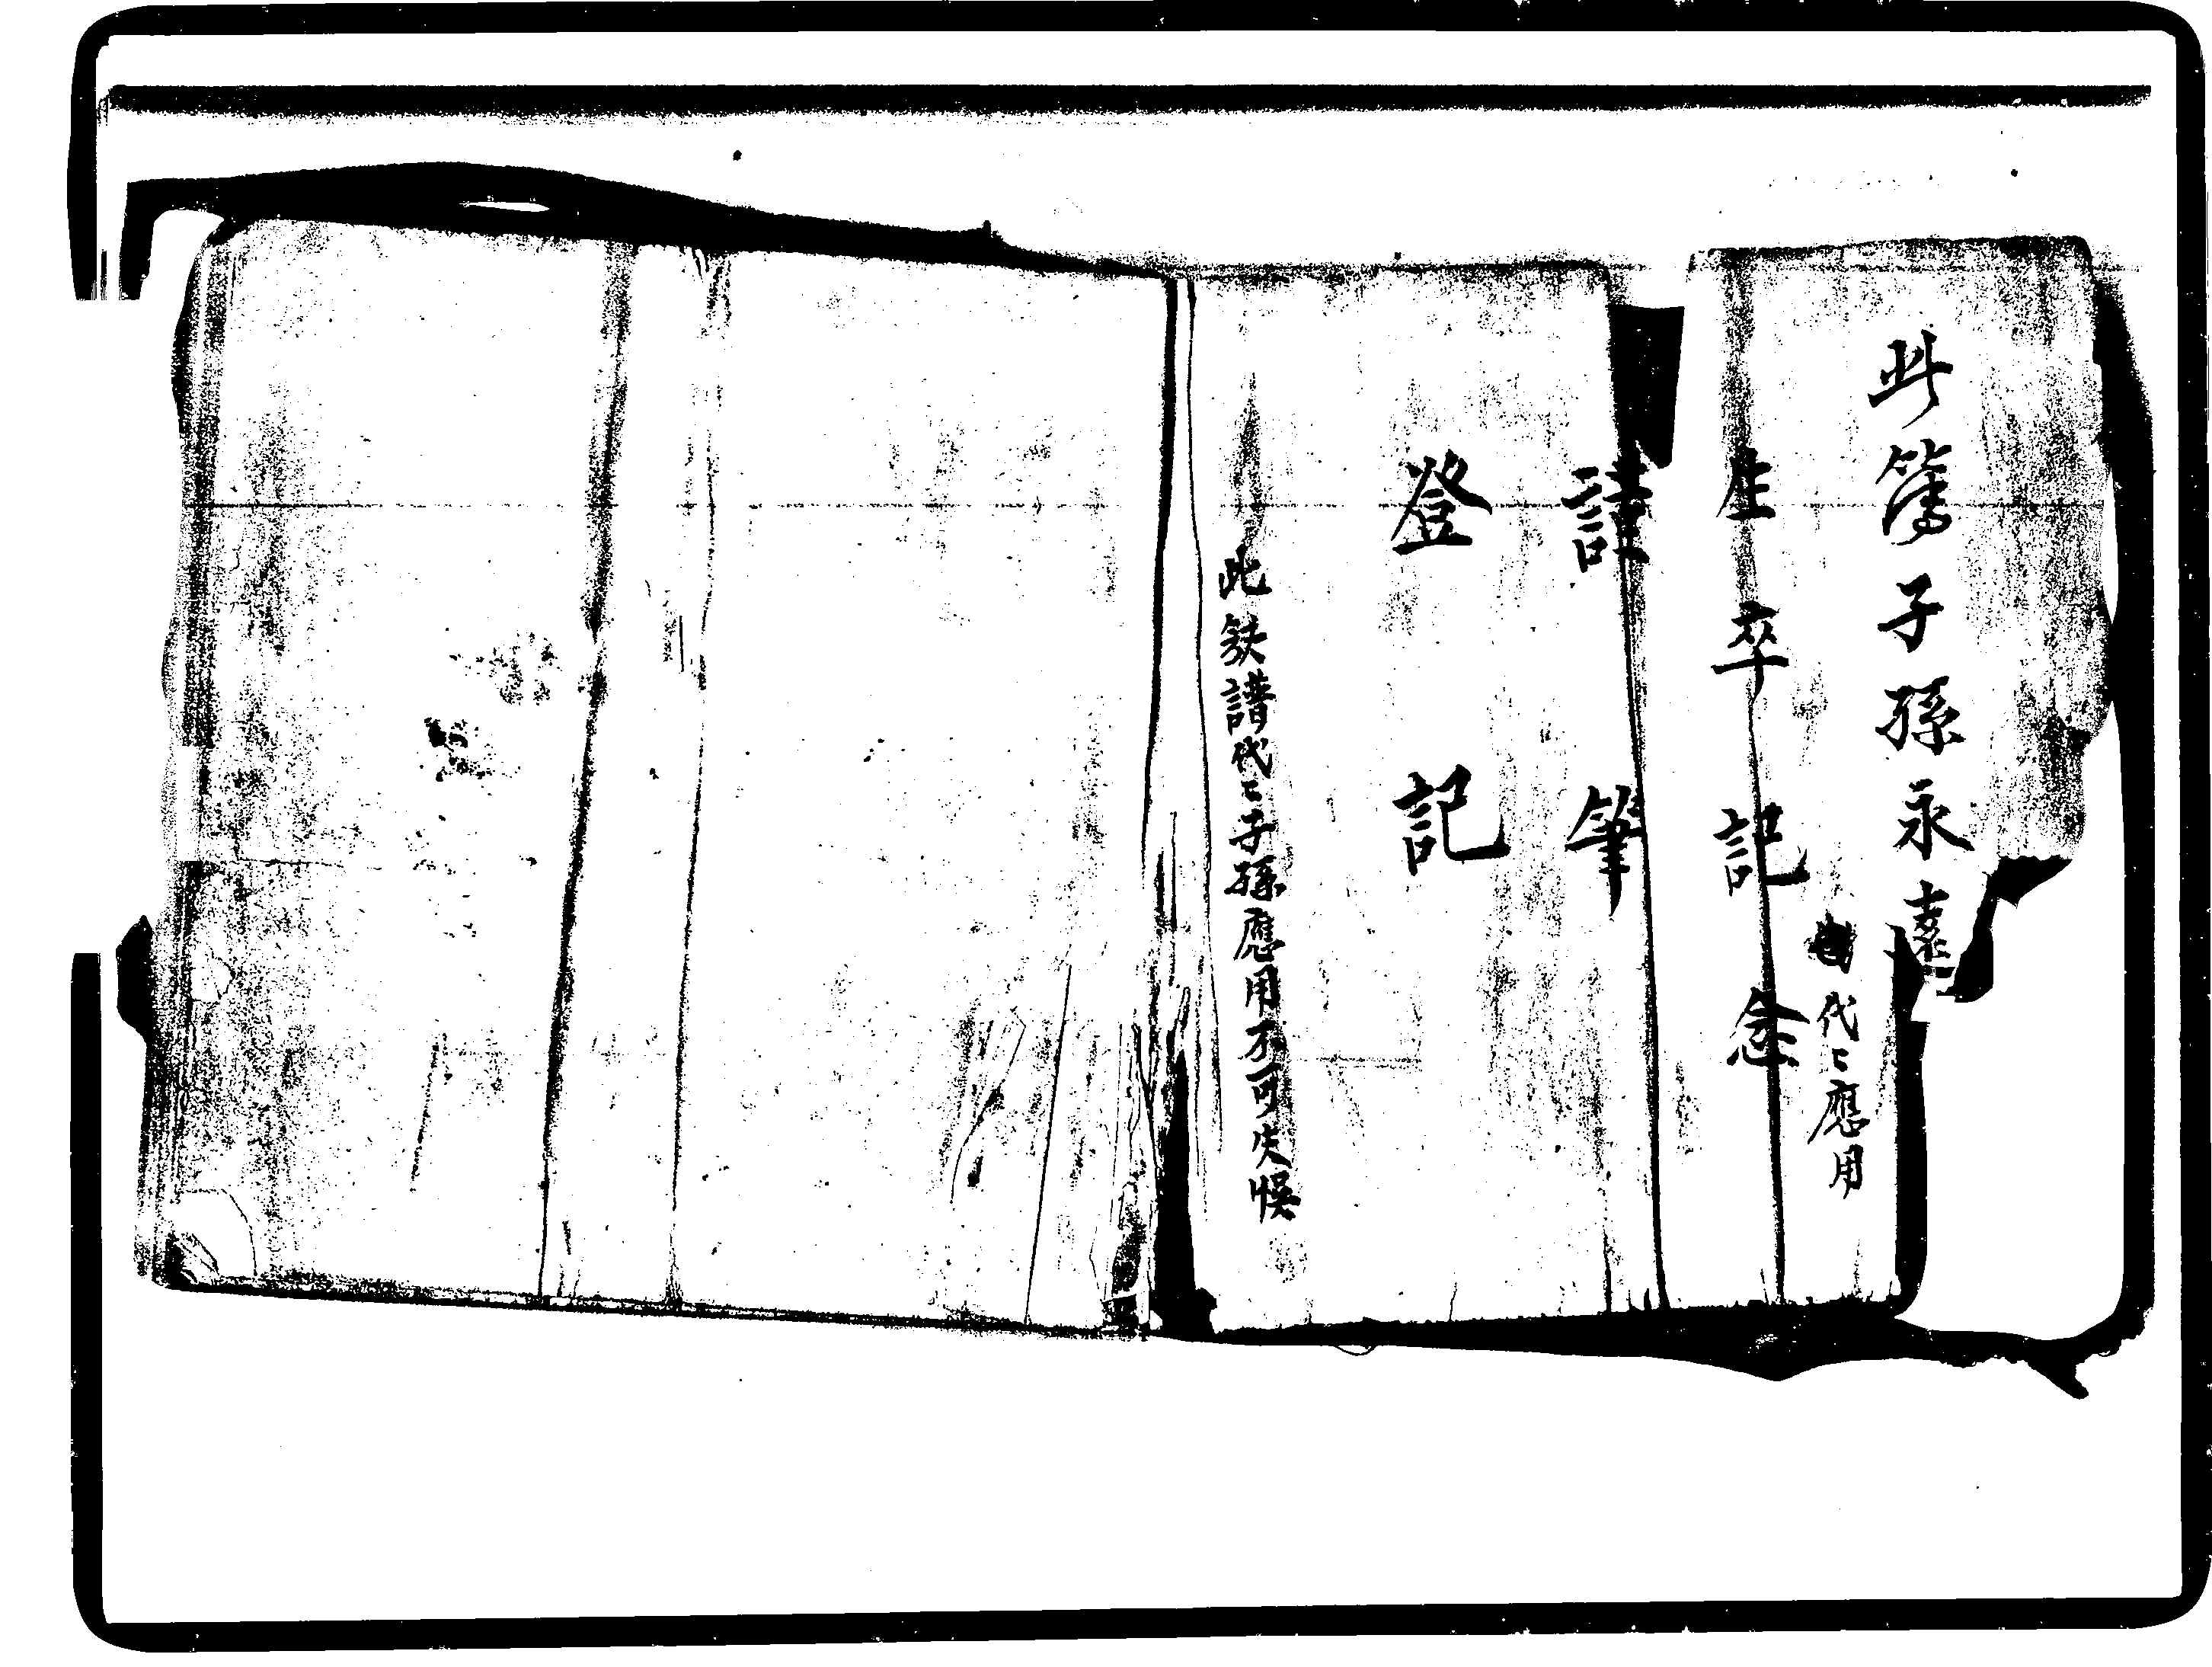 此簿子孫永遠
代〻應用
生卒記念
請筆
登記
此族譜代〻子孫應用不可失悞